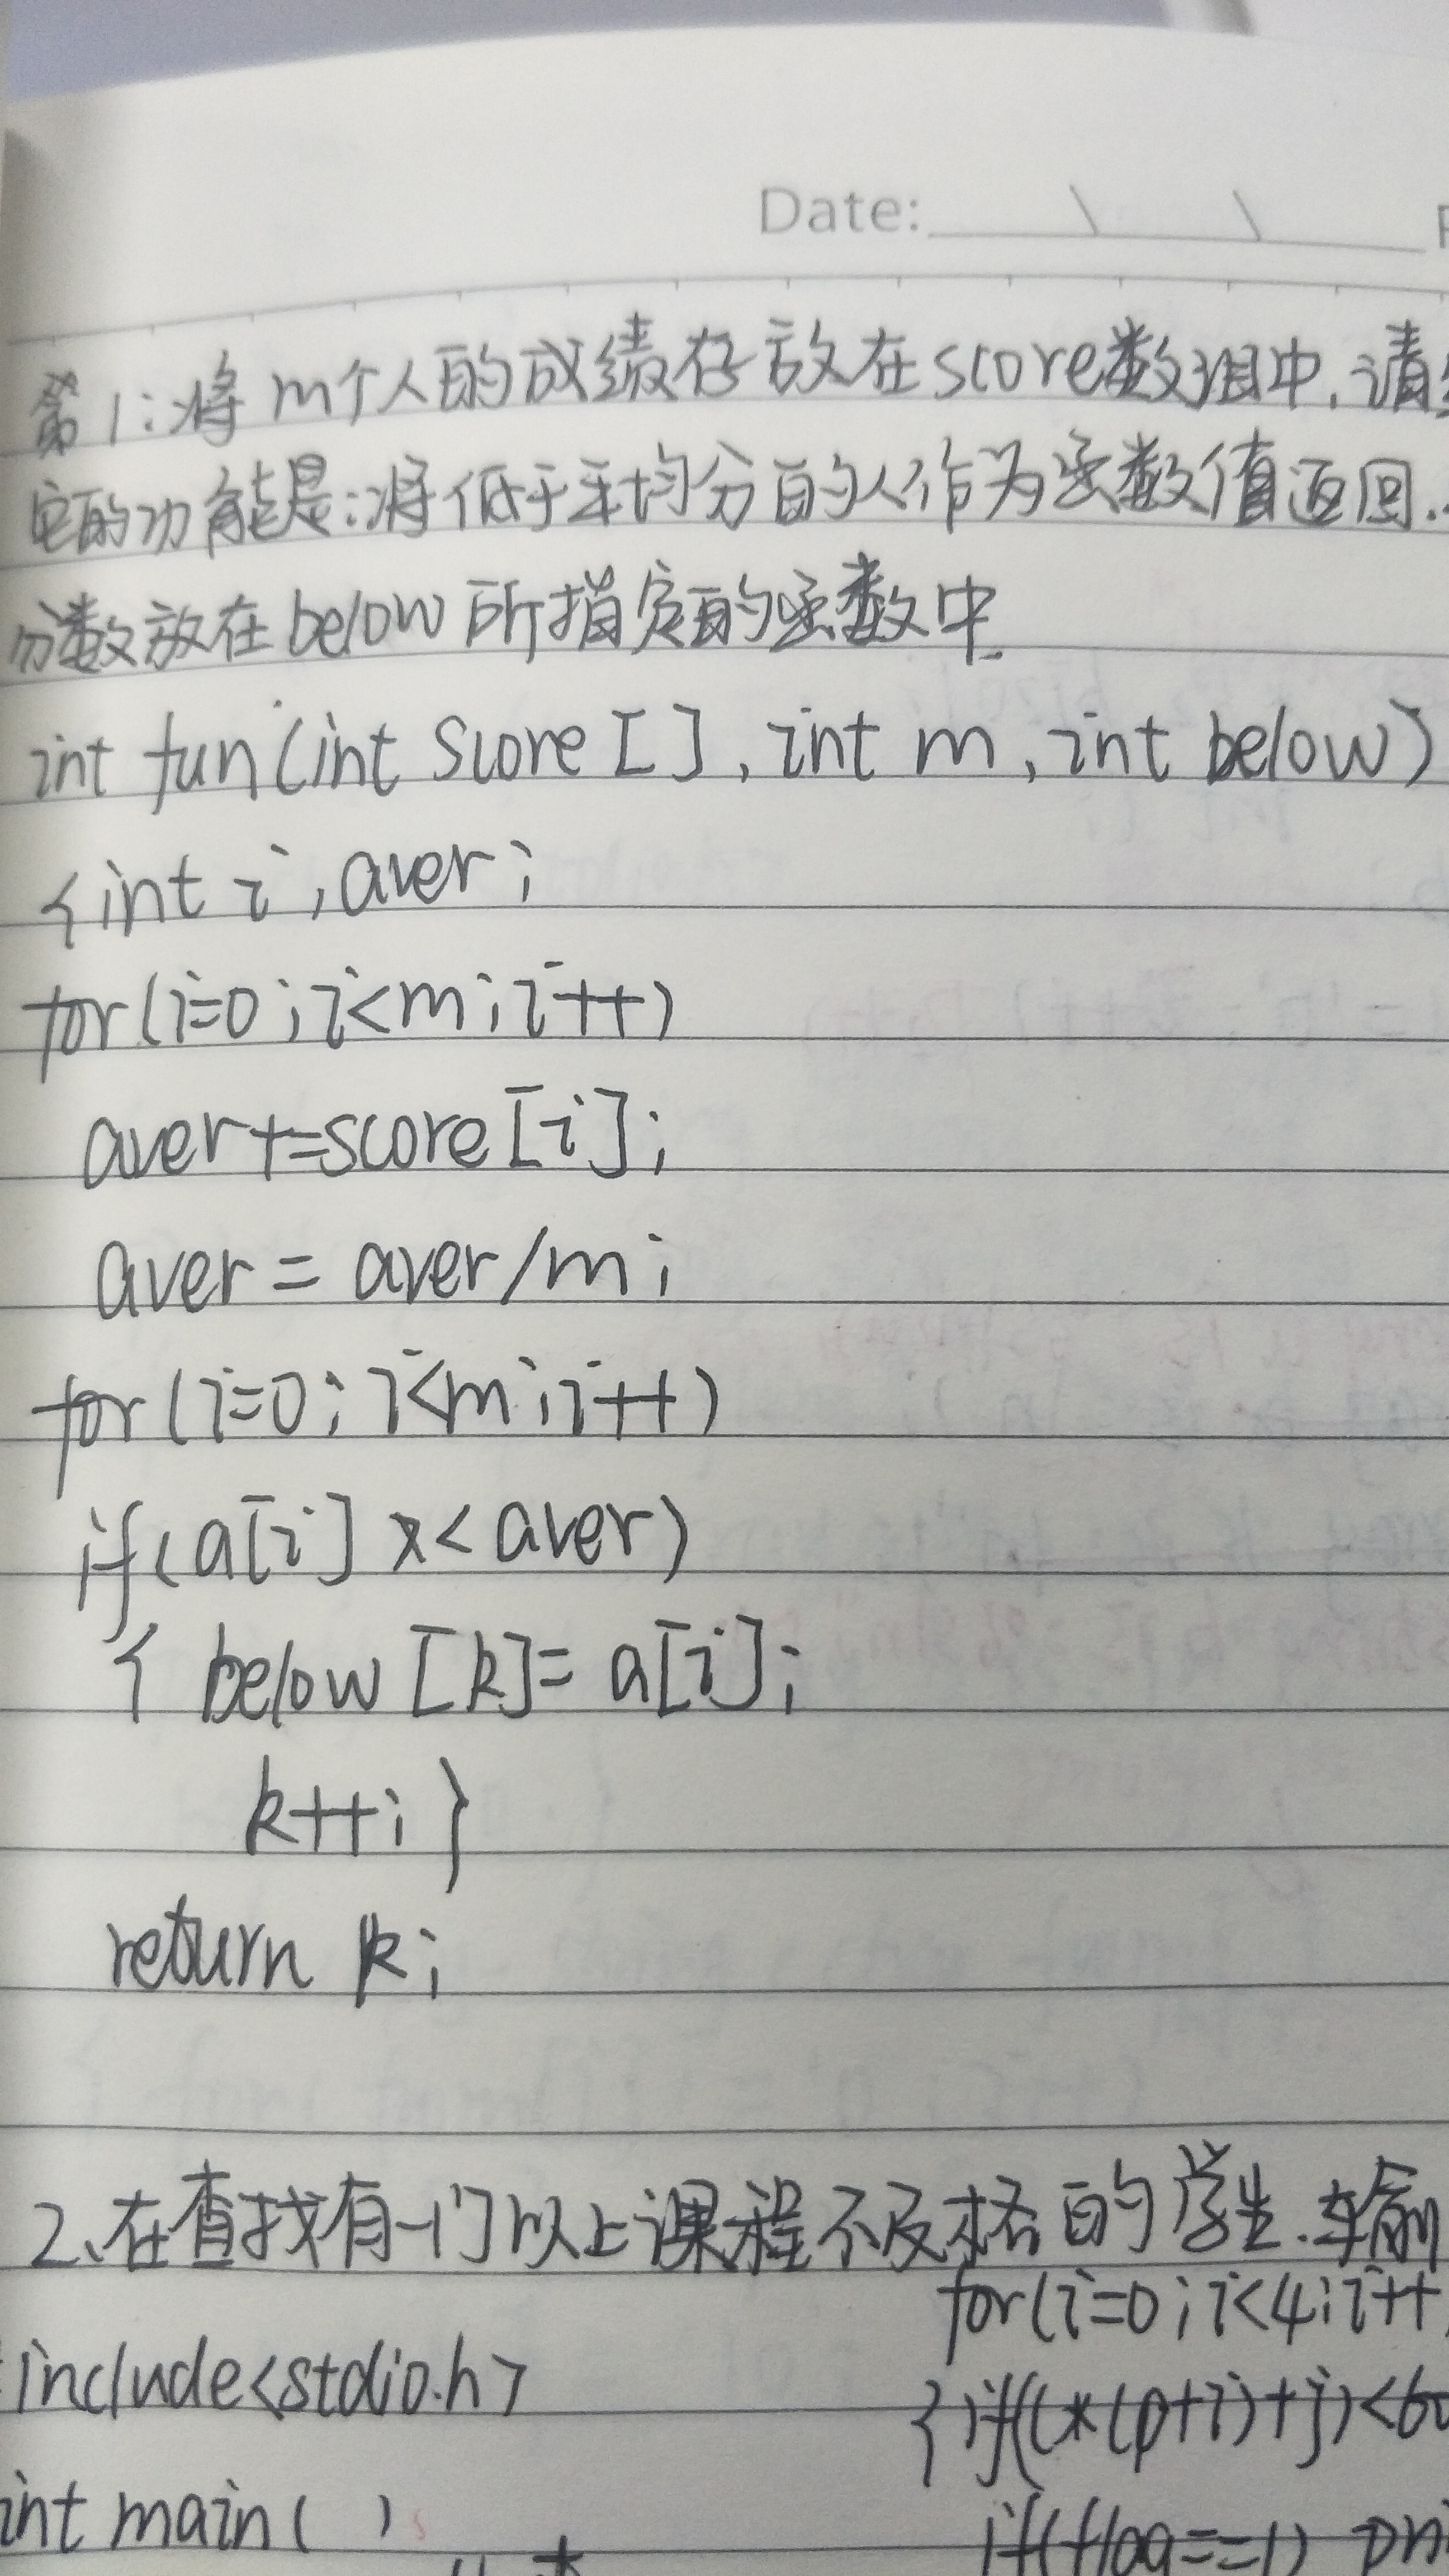 Date:
第1:将m个人的成绩存放在score数组中.请
它的功能是:将低于平均分的人作为函数值返回.
分数放在below所指定的函数中.
int fun(int score[],int m,int below)
{int i,aver;
for(i=0;i<m;i++)
aver+=score[i];
aver=aver/m;
for(i=0;i<m;i++)
if(a[i]x<aver)
{ below[k]=a[i];
k++;}
return k;
2、在查找有一门以上课程不及格的学生.输
for(i=0;i<4;i++
include<stdio.h>
{if((*(p+i)+j)<60
int main( )
if(flag==1)